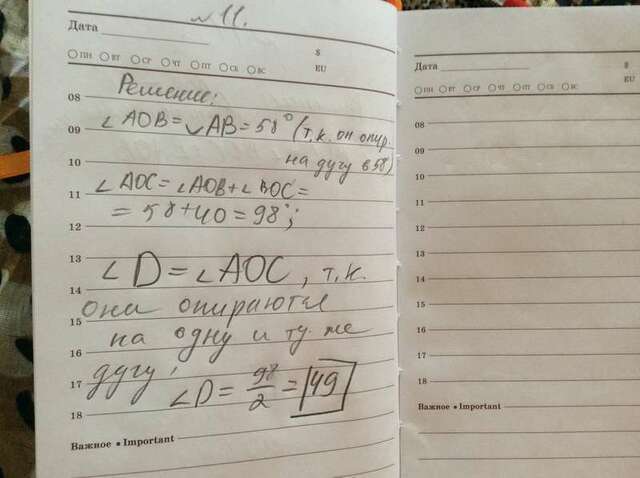 № 11.
Дата
$
ПН ВТ СР ЧТ ПТ СБ ВС
EU
08 Решение:
∠AOB=◡AB=58° (т.к. он опир.
09
на дугу в 58)
10
∠AOC=∠AOB+∠BOC=
11
=58+40=98°;
12
13
∠D=∠AOC, т.к.
14
они опираются
15
на одну и ту же
16
дугу;
17
∠D=98/2=49
18
Важное • Important
Дата
$
ПН ВТ СР ЧТ ПТ СБ ВС
EU
08
09
10
11
12
13
14
15
16
17
18
Важное • Important